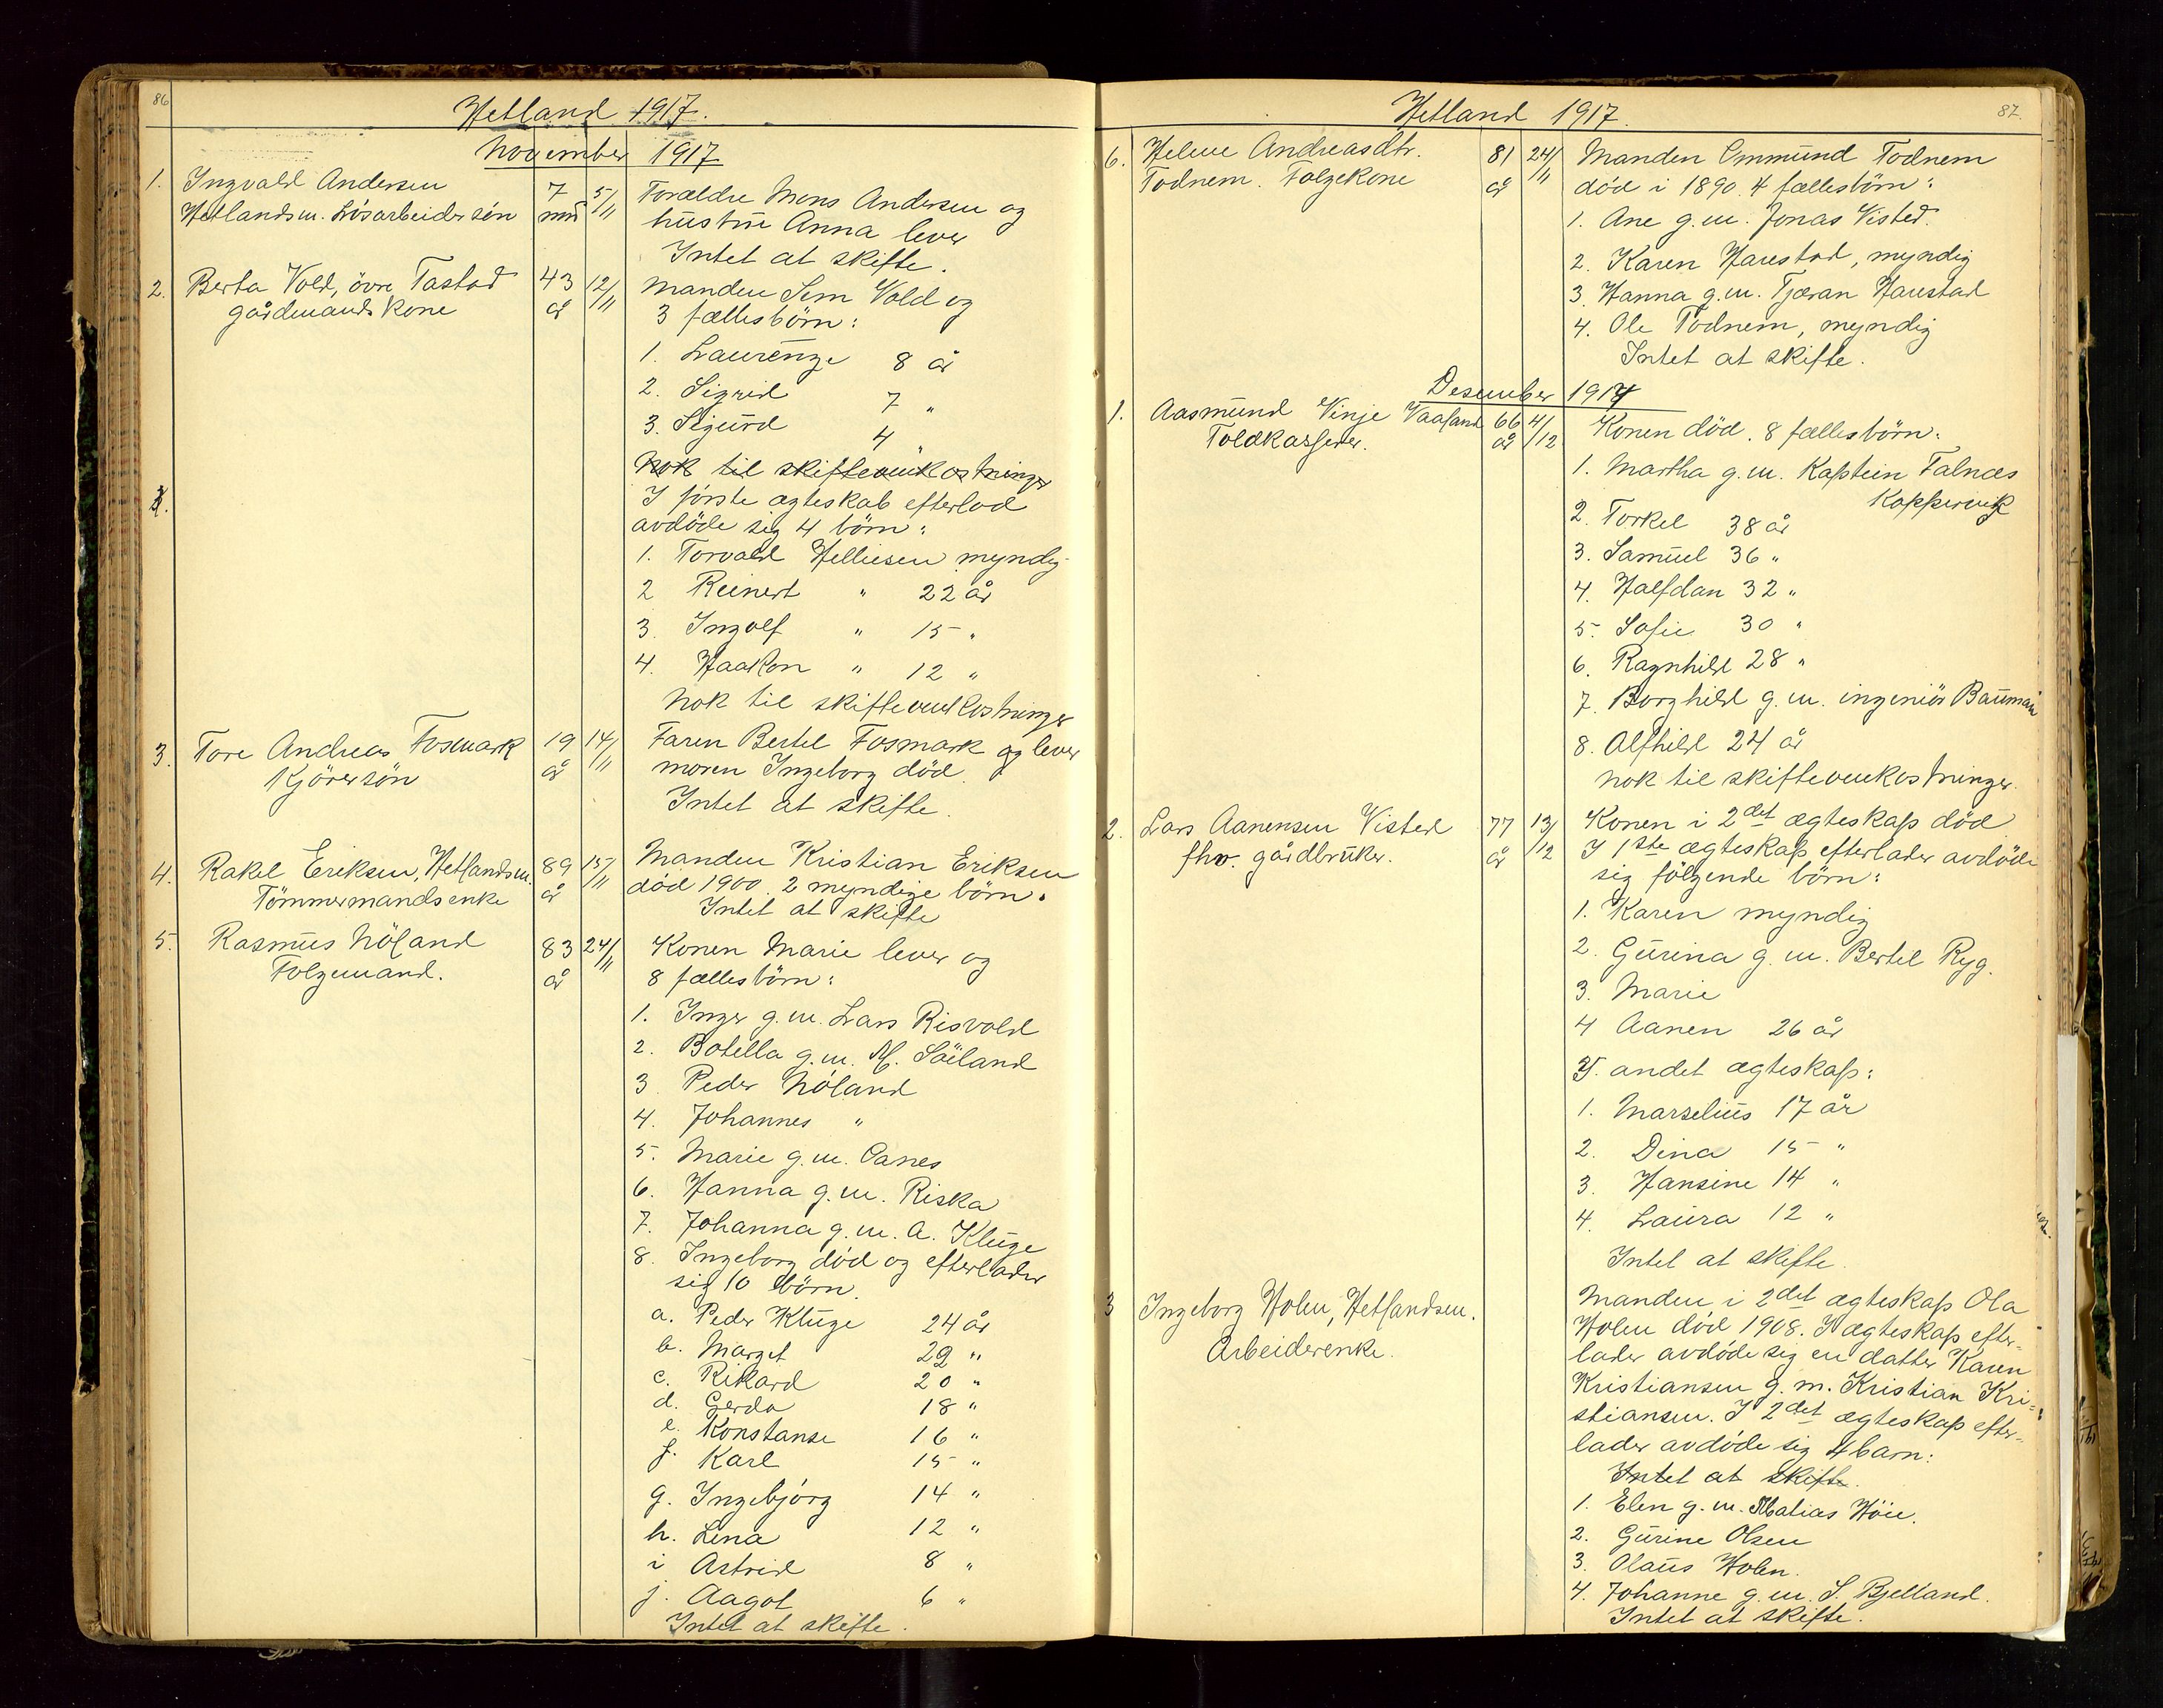 86
Hetland 1917.
November 1917
1. Ingvald Andersen 7 5/11 Forældre Mons Andersen og
Hetlandsm. Lösarbeidersön mnd hustru Anna lever
Intet at skifte.
2. Berta Vold, övre Tastad 43 12/11 Manden Sem Vold og
gårdmandskone år 3 fællesbörn:
1. Laurenze 8 år
2. Sigrid 7 "
3. Sigurd 4 "
Nok til skifteomkostninger
I förste ægteskab efterlod
avdöde sig 4 börn:
1. Torvald Helliesen myndig
2 Reinert " 22 år
3. Ingolf " 15 "
4. Haakon " 12 "
Nok til skifteomkostninger
3. Tore Andreas Fosmark 19 14/11 Faren Bertel Fosmark og lever
Kjörersön år moren Ingeborg död.
Intet at skifte.
4. Rakel Eriksen, Hetlandsm. 89 15/11 Manden Kristian Eriksen
Tömmermandsenke år död 1900. 2 myndige börn.
Intet at skifte
5. Rasmus Nöland 83 24/11 Konen Marie lever og
Folgemand. år 8 fællesbörn:
1. Inger g. m. Lars Risvold
2. Botella g. m. M. Söiland
3 Peder Nöland
4. Johannes "
5. Marie g. m. Oanes
6. Hanna g. m. Riska
7. Johanna g. m. A. Kluge
8. Ingeborg död og efterlader
sig 10 börn.
a. Peder Kluge 24 år
b. Marget 22 "
c. Rikard 20 "
d. Gerda 18 "
e. Konstanse 16 "
f. Karl 15 "
g. Ingebjörg 14 "
h. Lena 12 "
i Astrid 8 "
j. Aagot 6 "
Intet at skifte.
87.
Hetland 1917.
6. Helene Andreasdtr. 81 24/11 Manden Ommund Todnem
Todnem. Folgekone år död i 1890. 4 fællesbörn:
1. Ane g. m. Jonas Visted.
2. Karen Harestad, myndig
3. Hanna g. m. Tjæran Harestad
4. Ole Todnem, myndig
Intet at skifte.
Desember 1917
1. Aasmund Vinje Vaaland 66 4/12 Konen död. 8 fællesbörn:
Toldkasserer. år
1. Martha g. m. Kaptein Falnæs
Koppervik
2. Torkel 38 år
3. Samuel 36 "
4. Halfdan 32 "
5. Sofie 30 "
6. Ragnhild 28 "
7. Borghild g. m. ingeniör Bauman
8. Alfhild 24 år
Nok til skifteomkostninger.
2. Lars Aanensen Visted 77 13/12 Konen i 2det ægteskap död
fhv. gårdbruker. år I 1ste ægteskap efterlader avdöde
sig fölgende börn:
1. Karen myndig
2. Gurina g. m. Bertel Ryg.
3. Marie
4 Aanen 26 år
I andet ægteskap:
1. Marselius 17 år
2. Dina 15 "
3. Hansine 14 "
4. Laura 12 "
Intet at skifte.
3 Ingeborg Holen, Hetlandsm. Manden i 2det ægteskap Ola
Arbeiderenke. Holen död 1908. I ægteskap efter-
lader avdöde sig en datter Karen
Kristiansen g. m. Kristian Kri-
stiansen. I 2det ægteskap efter-
lader avdöde sig 4 barn:
Intet at skifte.
1. Elen g. m. Matias Höie.
2. Gurine Olsen
3. Olaus Holen.
4. Johanne g. m. S. Bjelland.
Intet at skifte.